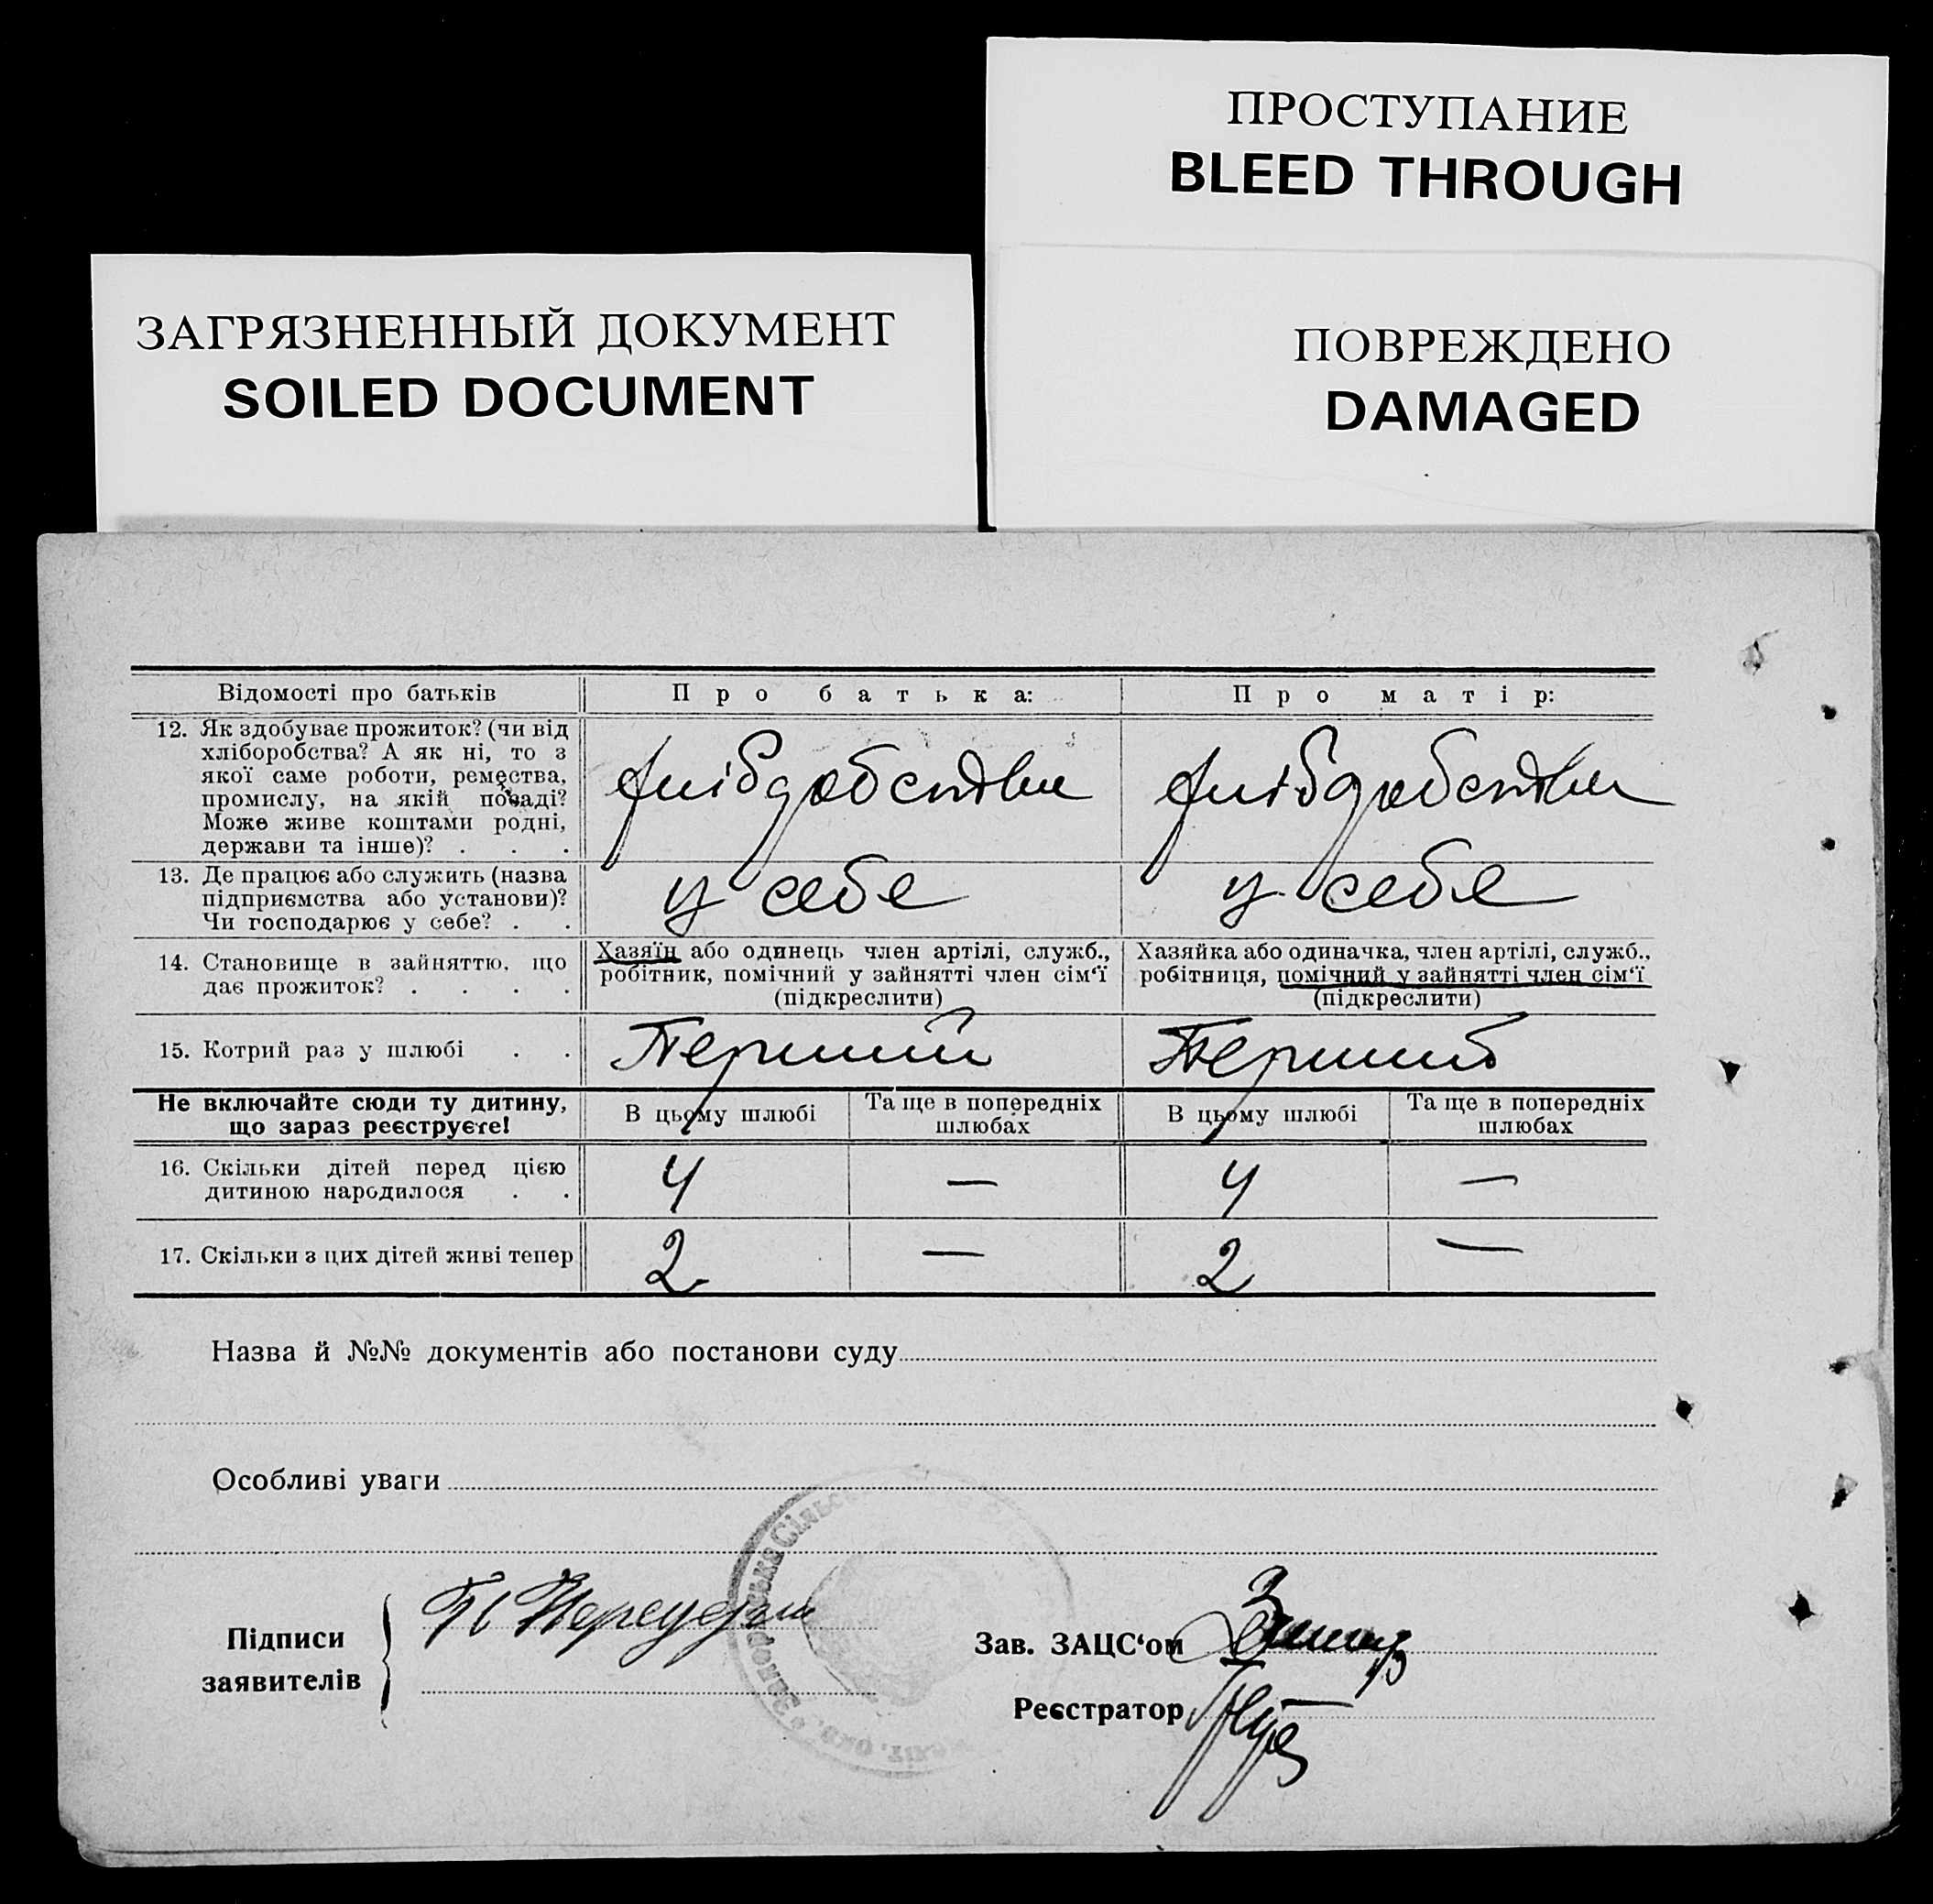 ПРОСТУПАНИЕ
BLEED THROUGH
ЗАГРЯЗНЕННЫЙ ДОКУМЕНТ
SOILED DOCUMENT
ПОВРЕЖДЕНО
DAMAGED
Відомості про батьків
Про батька:
Про матір:
12. Як здобуває прожиток? (чи від
хліборобства? А як ні, то з
якої саме роботи, ремества,
промислу, на якій посаді?
Може живе коштами родні,
держави та інше)? . . .
хлібробство
хлібробство
13. Де працює або служить (назва
підприємства або установи)?
Чи господарює у себе? . .
у себе
у себе
14. Становище в зайняттю, що
дає прожиток? . . . .
Хазяїн або одинець член артілі, служб.,
робітник, помічний у зайнятті член сім‘ї
(підкреслити)
Хазяйка або одиначка, член артілі, служб.,
робітниця, помічний у зайнятті член сім‘ї
(підкреслити)
15. Котрий раз у шлюбі . .
Перший
Перший
Не включайте сюди ту дитину,
що зараз реєструєте!
В цьому шлюбі
Та ще в попередніх
шлюбах
В цьому шлюбі
Та ще в попередніх
шлюбах
16. Скільки дітей перед цією
дитиною народилося . .
4
—
4
—
17. Скільки з цих дітей живі тепер
2
—
2
—
Назва й №№ документів або постанови суду
Особливі уваги
Підписи
заявителів
Зав. ЗАЦС‘ом
Реєстратор